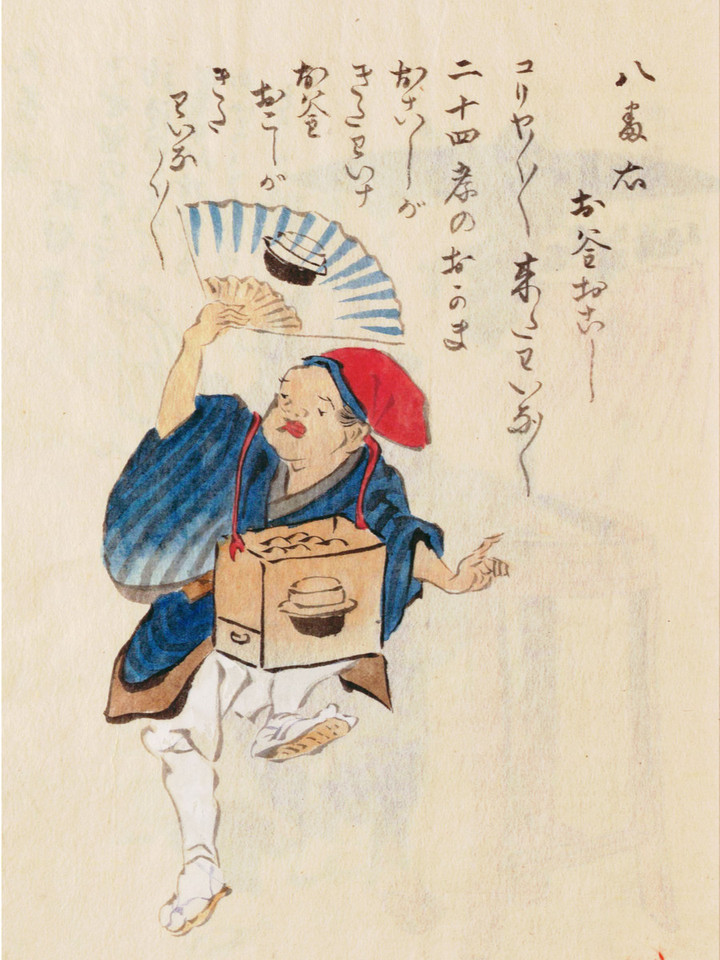 八番右
お釜おこし
コリヤ〳〵〳〵来たわいな〳〵
二十四孝のおかま
おこしが
きたわいナ
お釜
おこしが
きた
わいな〳〵